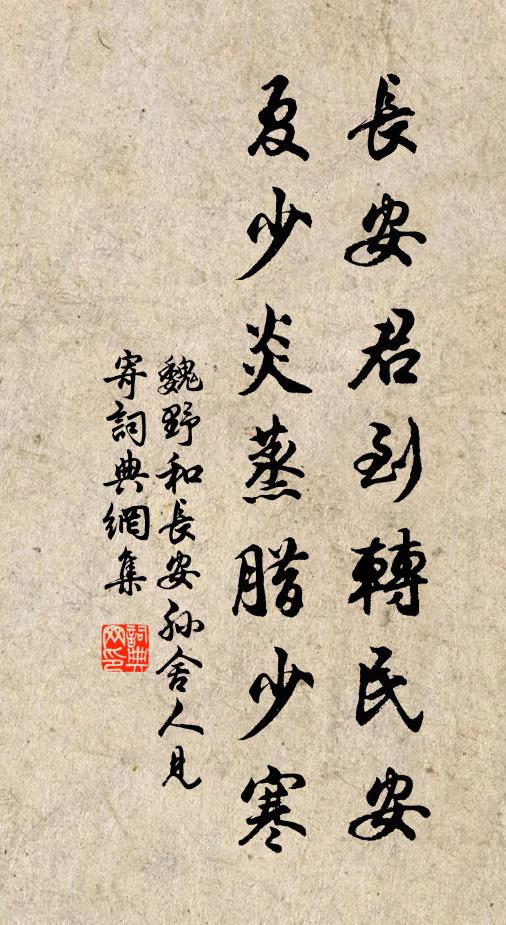 長安君到轉民安
夏少炎蒸腊少寒
魏野和長安孙舍人見
寄詞典網集
詞典
网印